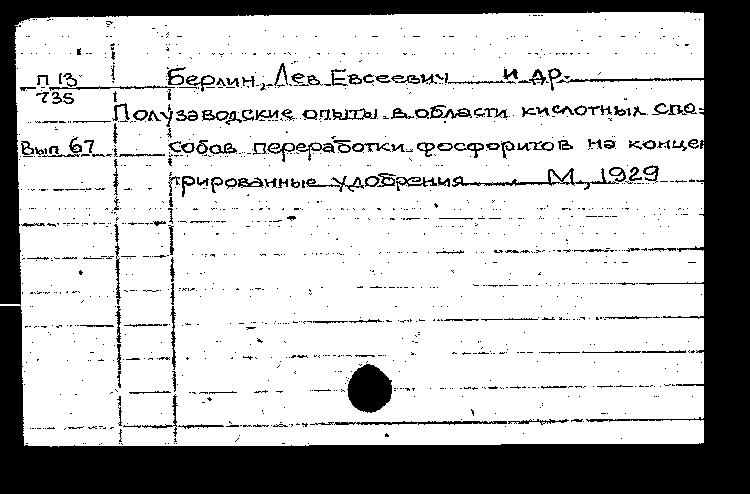 П 13 Берлин, Лев Евсеевич и др.
735
Полузаводские опыты в области кислотных спо-
Вып 67 собов переработки фосфоритов на концен
трированные удобрения М., 1929